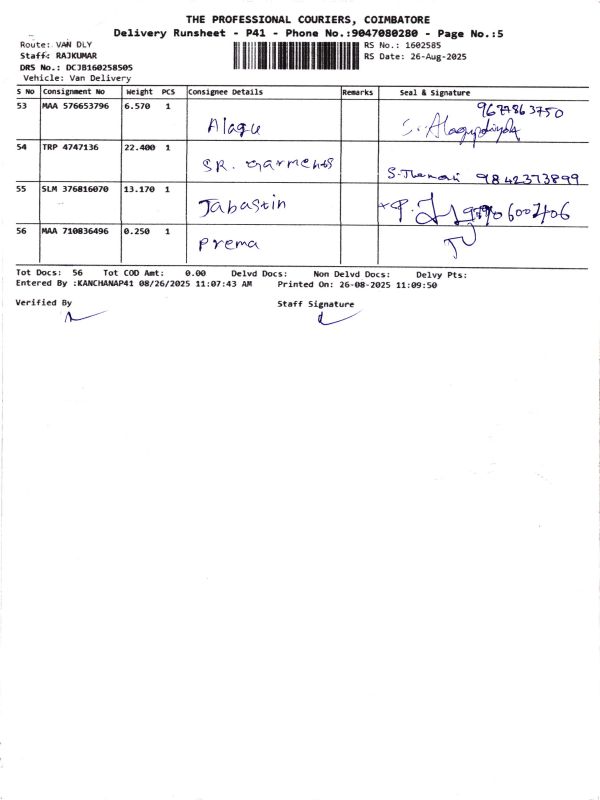 THE PROFESSIONAL COURIERS, COIMBATORE
Delivery Runsheet - P41 - Phone No.:9047080280 - Page No.:5
Route: VAN DLY RS No.: 1602585
Staff: RAJKUMAR RS Date: 26-Aug-2025
DRS No.: DCJB160258505
Vehicle: Van Delivery
S No Consignment No Weight PCS Consignee Details Remarks Seal & Signature
53 MAA 576653796 6.570 1 9677863750
Alagu
54 TRP 4747136 22.400 1
SR. Garments 9842373899
55 SLM 376816070 13.170 1
Jabastin
56 MAA 710836496 0.250 1
Prema
Tot Docs: 56 Tot COD Amt: 0.00 Delvd Docs: Non Delvd Docs: Delvy Pts:
Entered By :KANCHANAP41 08/26/2025 11:07:43 AM Printed On: 26-08-2025 11:09:50
Verified By Staff Signature